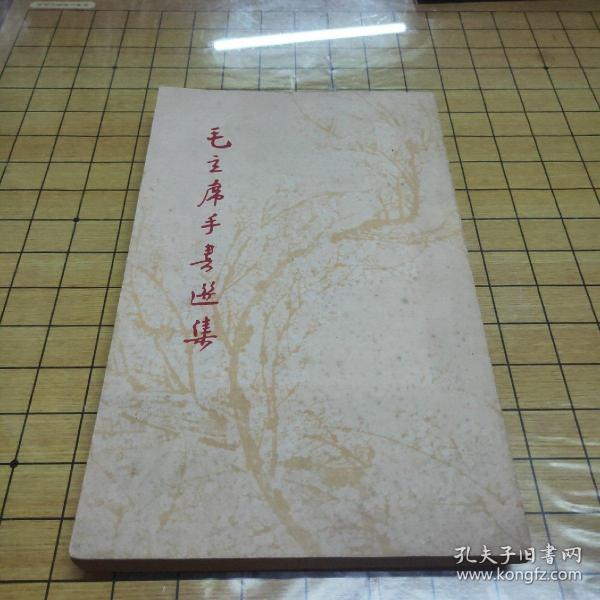 毛主席手書選集
孔夫子旧書网
www.kongfz.com